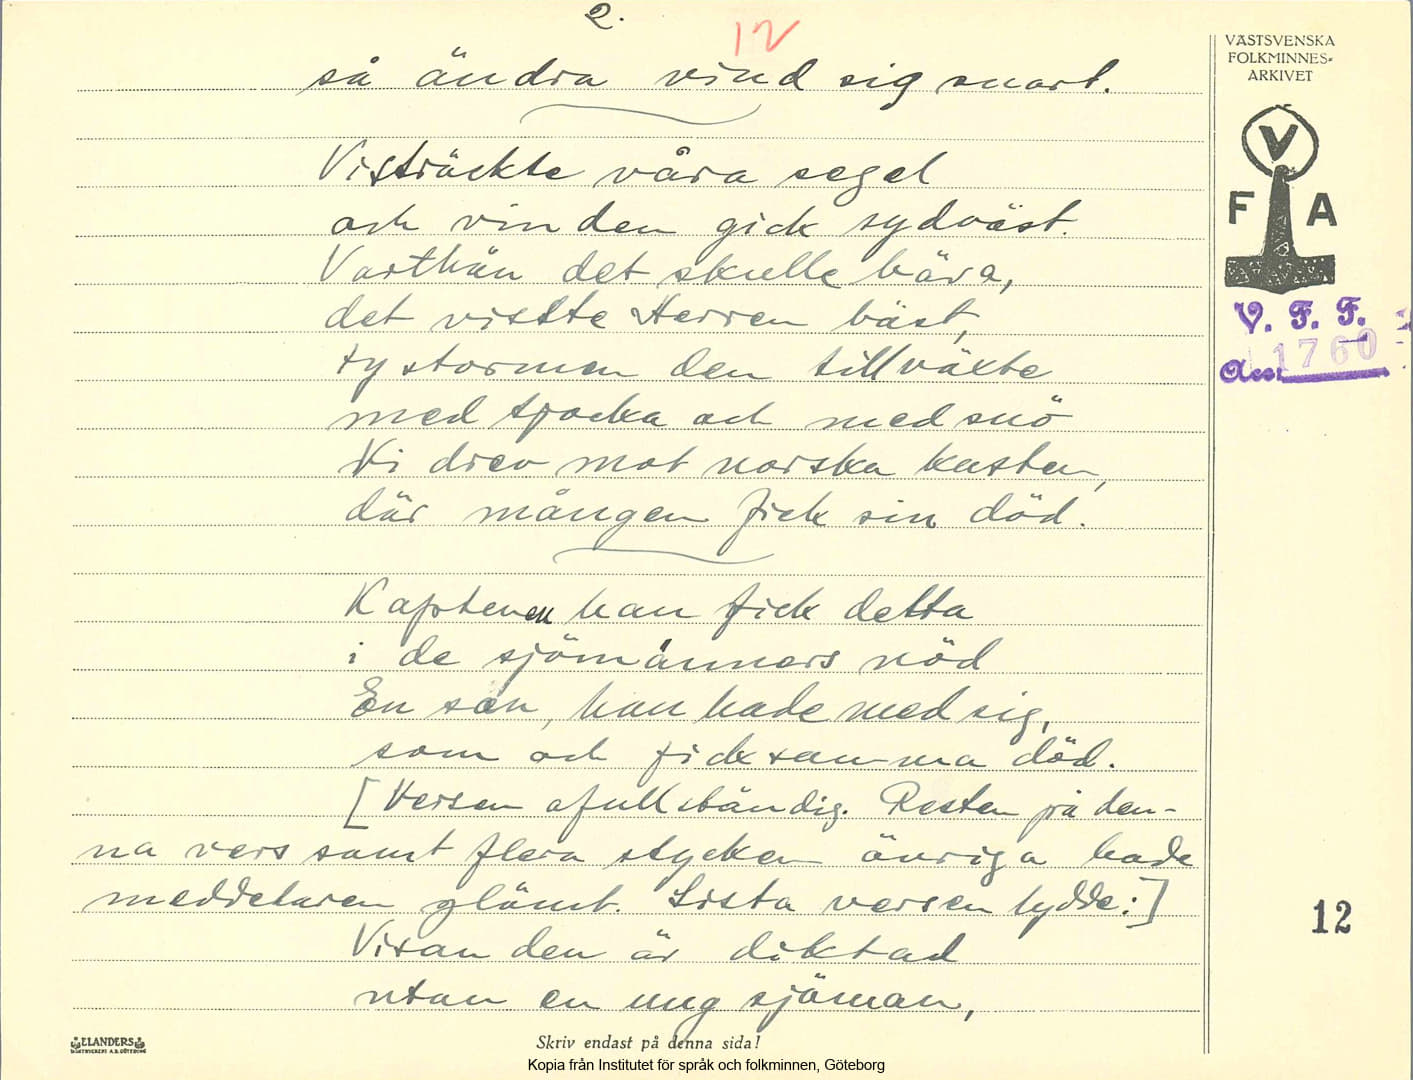 2.
12
så ändra vind sig snart.
Vi sträckte våra segel
och vinden gick sydväst.
Varthän det skulle bära,
det visste Herren bäst,
ty stormen den tillväxte
med tjocka och med snö
Vi drev mot norska kusten,
där mången fick sin död.
Kaptenen han fick detta
i de sjömänners nöd
En son, han hade med sig,
som och fick samma död.
[Versen ofullständig. Resten på den-
na vers samt flera stycken övriga hade
meddelaren glömt. Sista versen lydde:]
Visan den är diktad
utan en ung sjöman,
VÄSTSVENSKA
FOLKMINNES-
ARKIVET
V
F A
V. F. F.
Acc. 1760
12
ELANDERS
BOKTRYCKERI A.B. GÖTEBORG
Skriv endast på denna sida!
Kopia från Institutet för språk och folkminnen, Göteborg